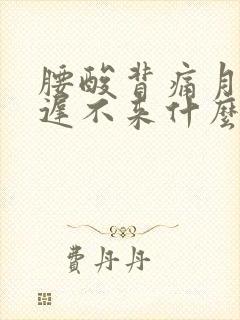 腰酸背痛月
遲不来什麼
費丹丹